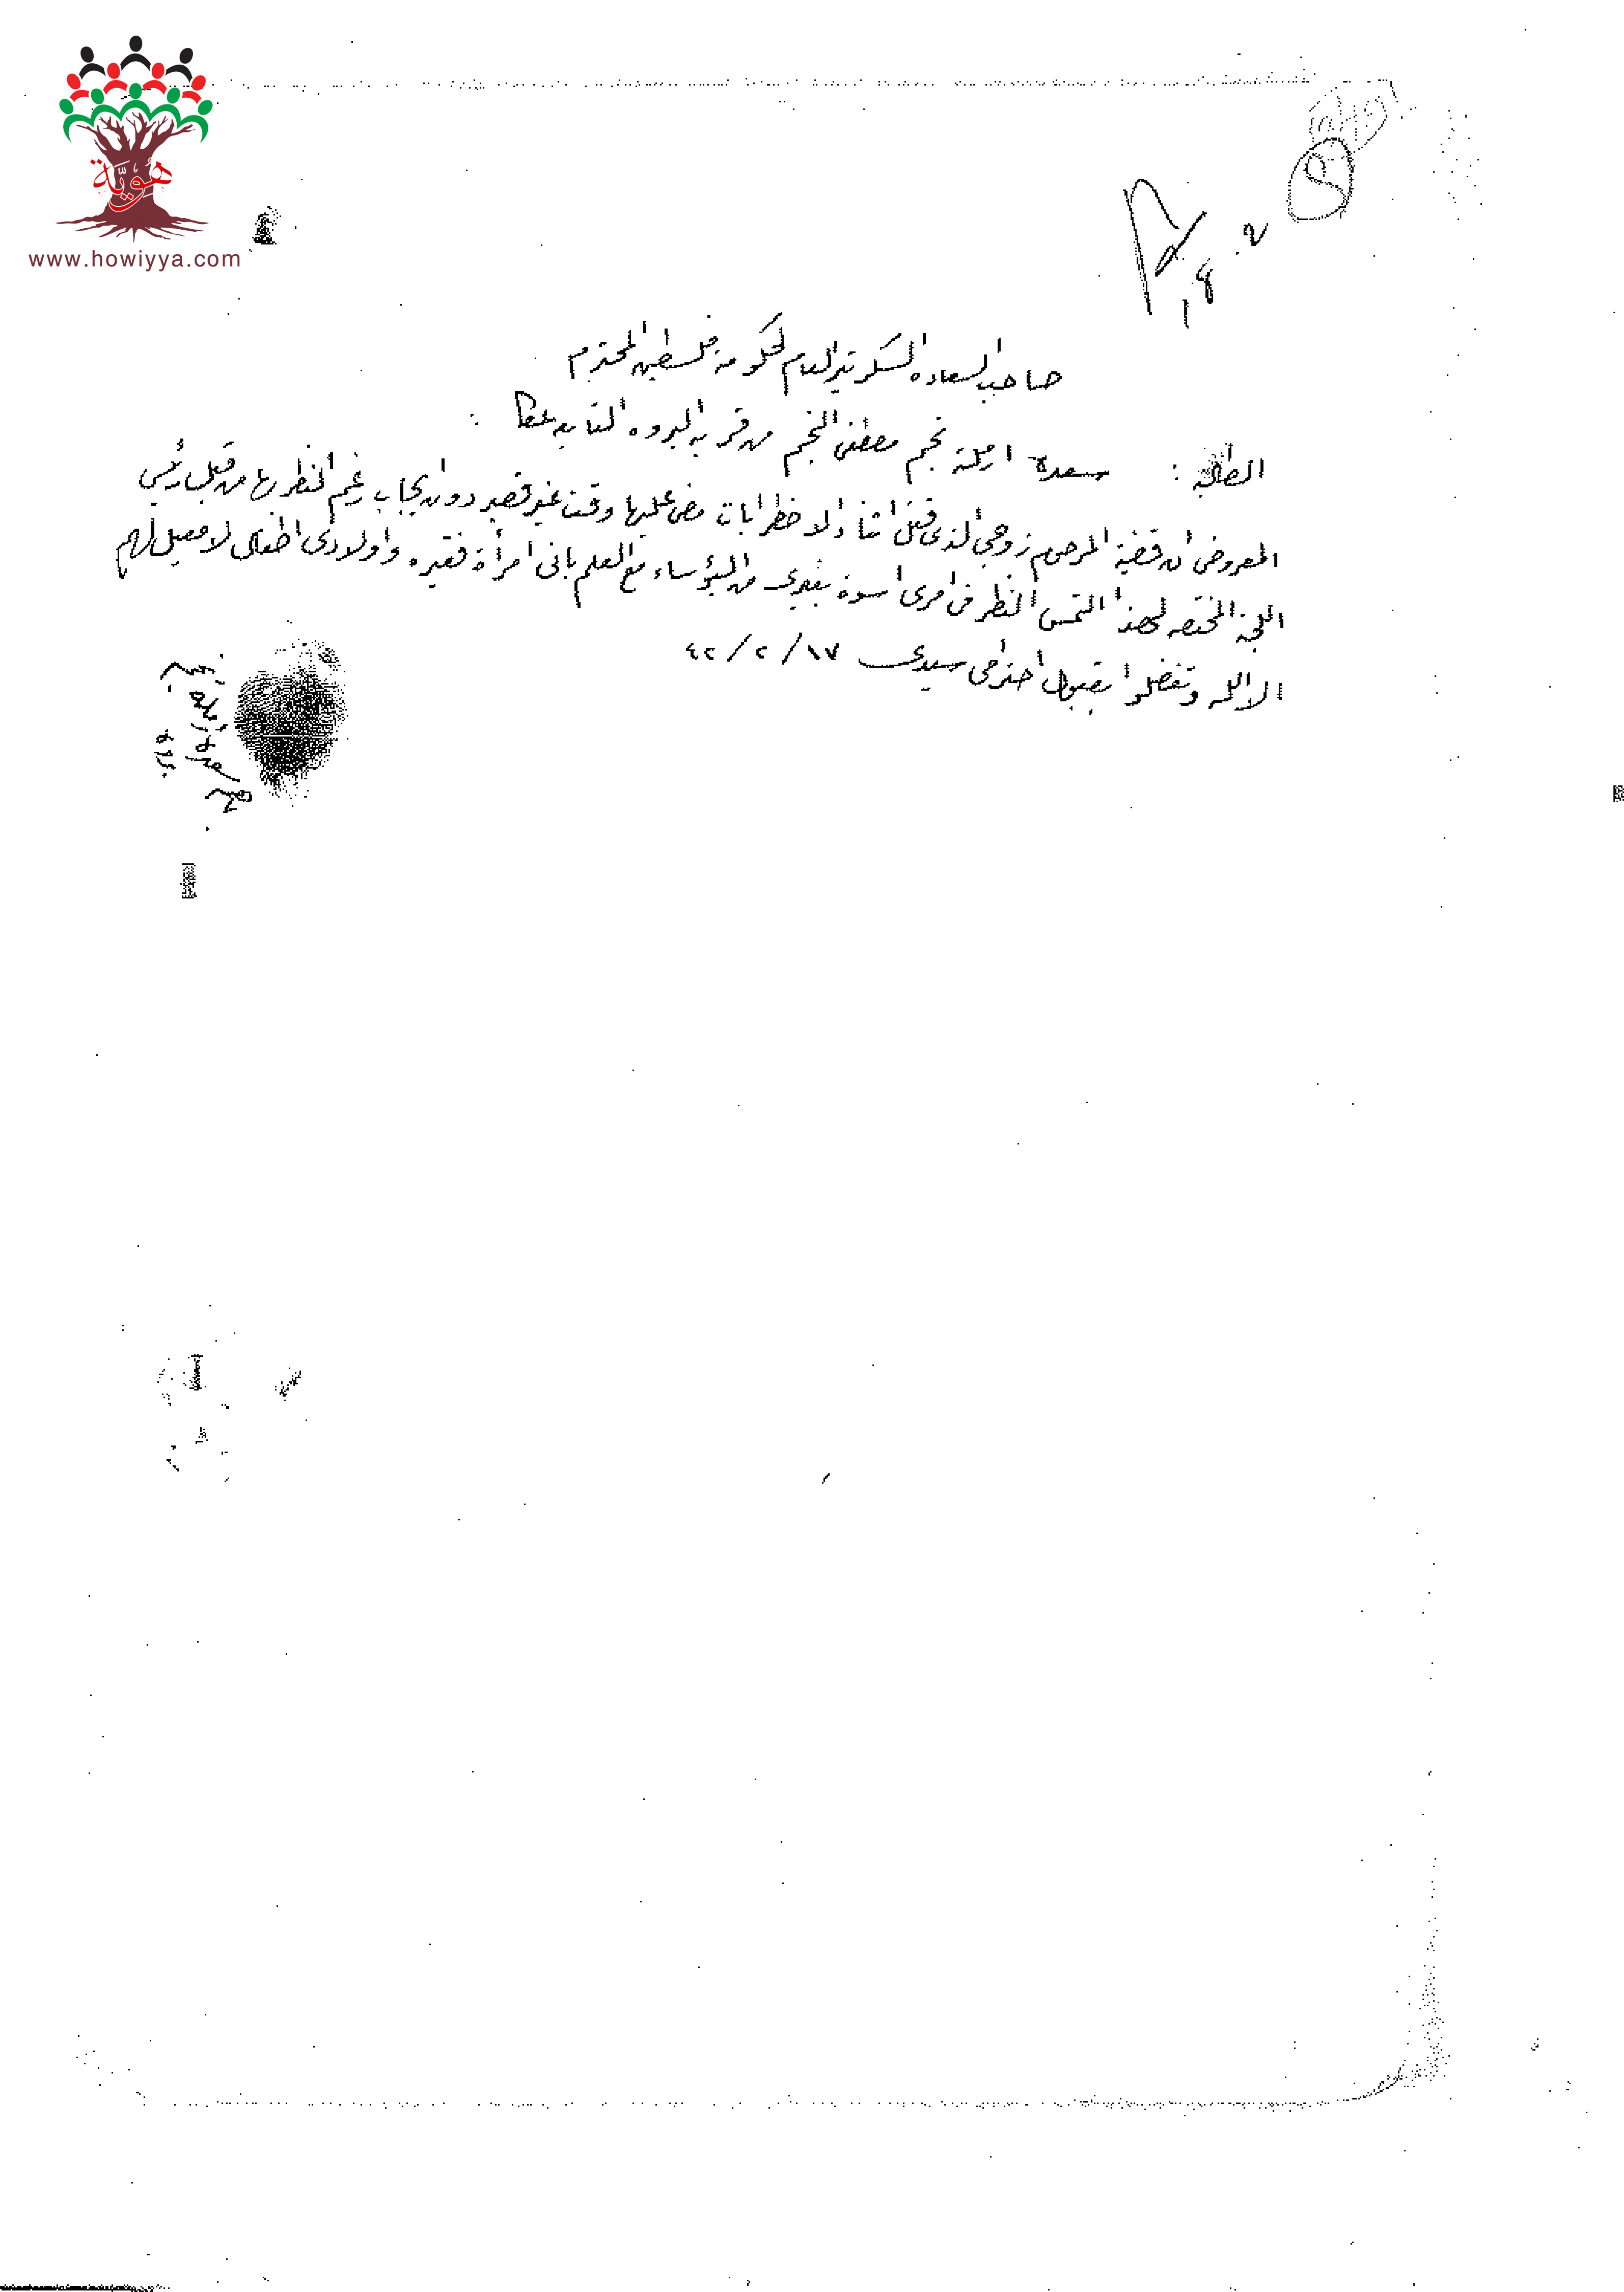 هوية
www.howiyya.com
صاحب السعاده السكرتير العام لحكومة فلسطين المحترم
الطالبة : سعدة ارملة نجم مصطفى النجم من قرية البروه التابعه عكا :
المعروض ان قضية المرحوم زوجي الذي قتل اثناء الاضطرابات مضى عليها وقت غير قصير دون ايجاب رغم النظر بها من قبل رئيس
اللجنة المختصه لهذا التمس النظر في امري اسوة بغيري من البؤساء مع العلم باني امرأة فقيره واولادي اطفال لا معيل لهم
الا الله وتفضلوا بقبول احترامي سيدي ١٧/٢/٤٢
سعدة ارملة